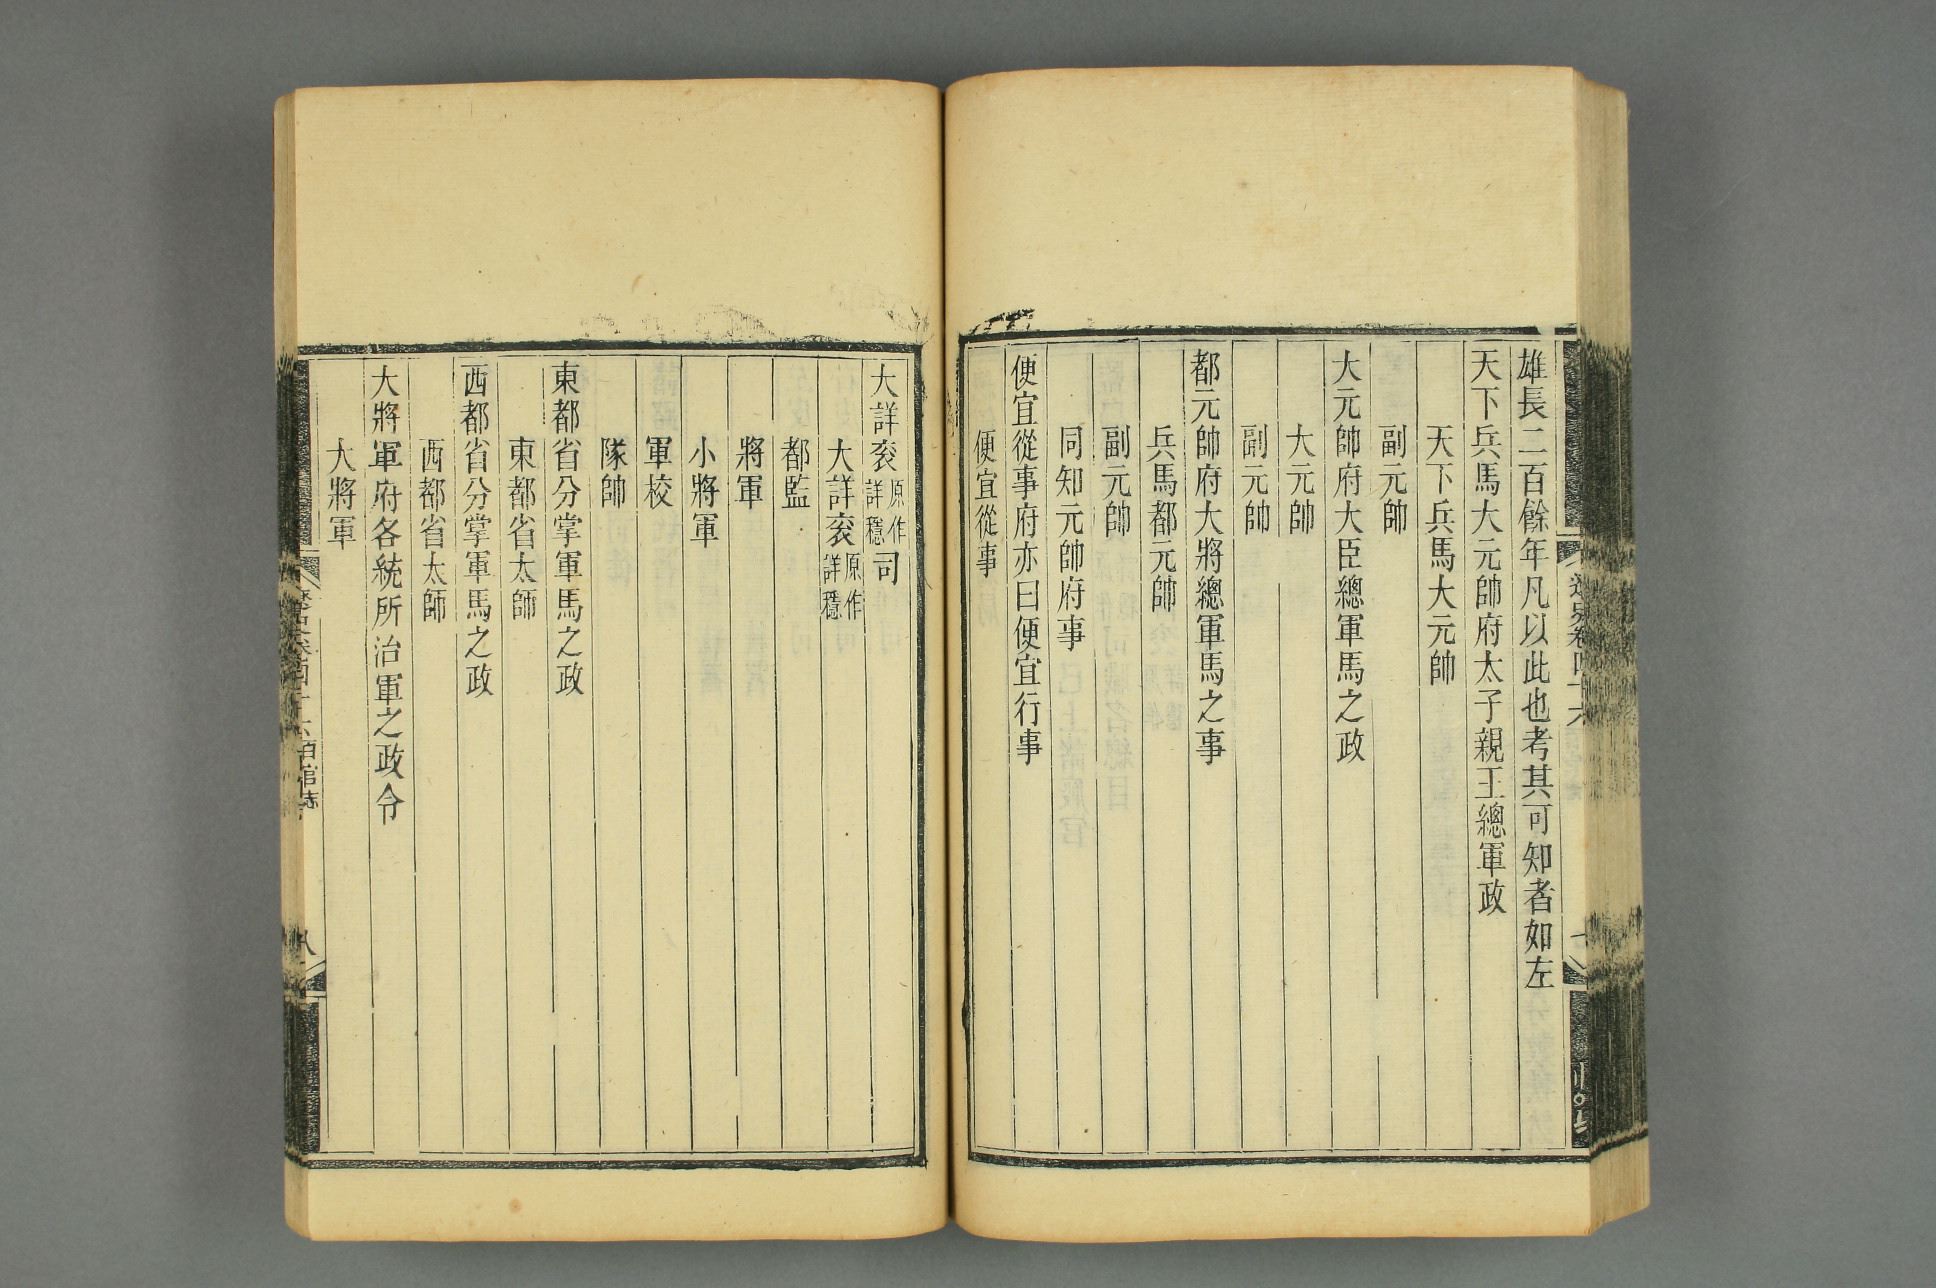 雄長二百餘年凡以此也考其可知者如左
天下兵馬大元帥府太子親王總軍政
天下兵馬大元帥
副元帥
大元帥府大臣總軍馬之政
大元帥
副元帥
都元帥府大將總軍馬之事
兵馬都元帥
副元帥
同知元帥府事
便宜從事府亦曰便宜行事
便宜從事
大詳袞原作詳穩司
大詳袞原作詳穩
都監
將軍
小將軍
軍校
隊帥
東都省分掌軍馬之政
東都省太師
西都省分掌軍馬之政
西都省太師
大將軍府各統所治軍之政令
大將軍
百官志
八